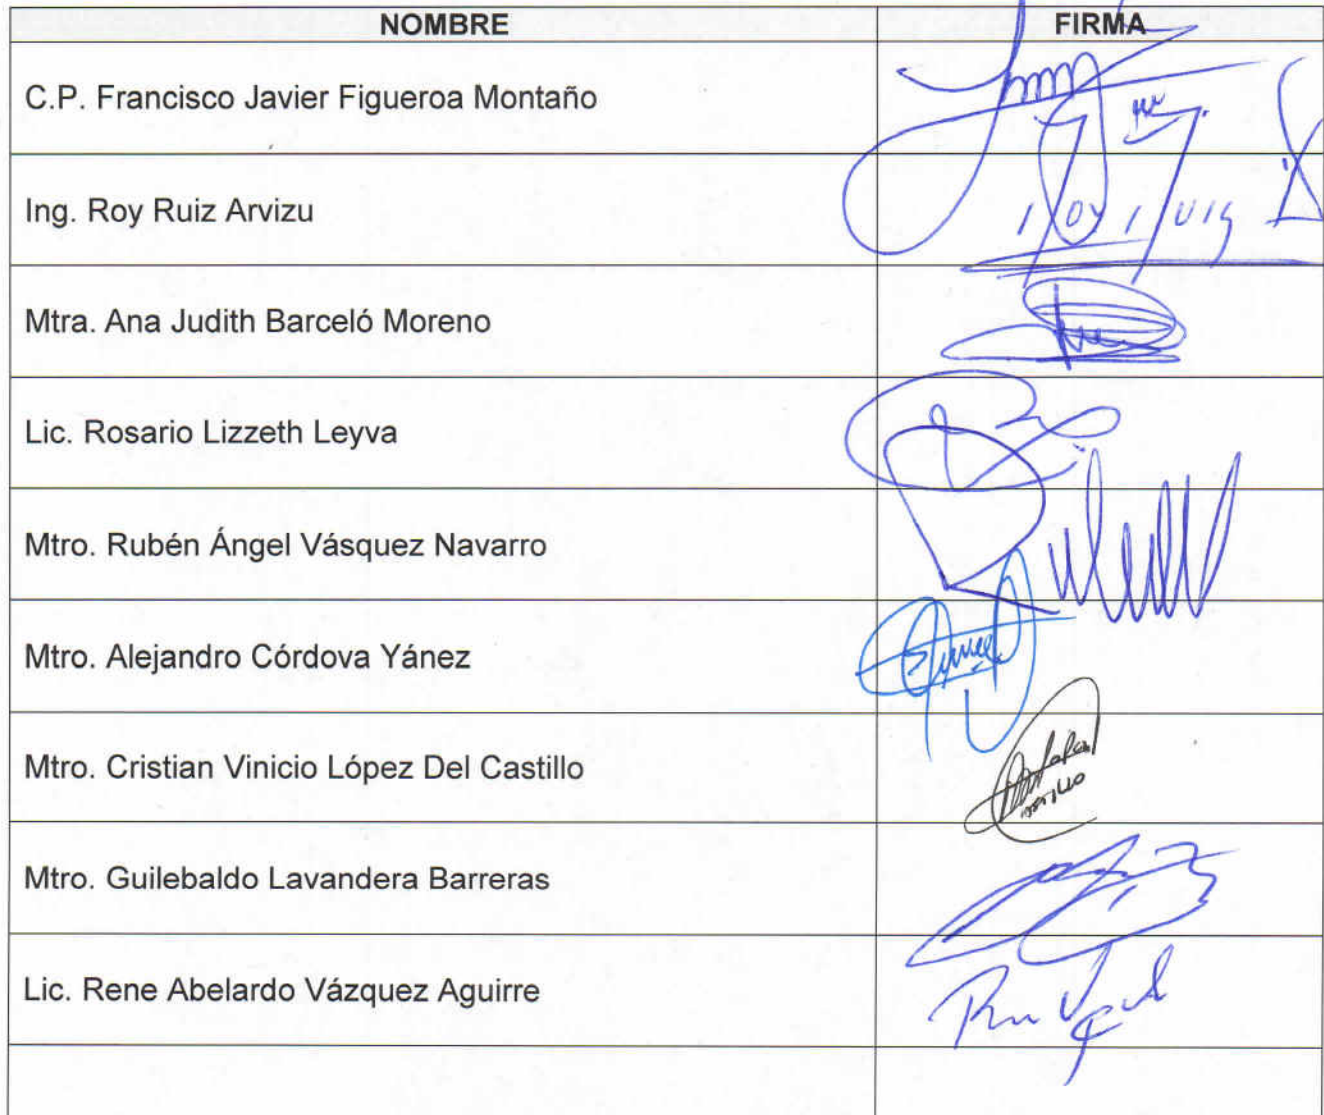 NOMBRE FIRMA
C.P. Francisco Javier Figueroa Montaño
Ing. Roy Ruiz Arvizu
Mtra. Ana Judith Barceló Moreno
Lic. Rosario Lizzeth Leyva
Mtro. Rubén Ángel Vásquez Navarro
Mtro. Alejandro Córdova Yánez
Mtro. Cristian Vinicio López Del Castillo
Mtro. Guilebaldo Lavandera Barreras
Lic. Rene Abelardo Vázquez Aguirre